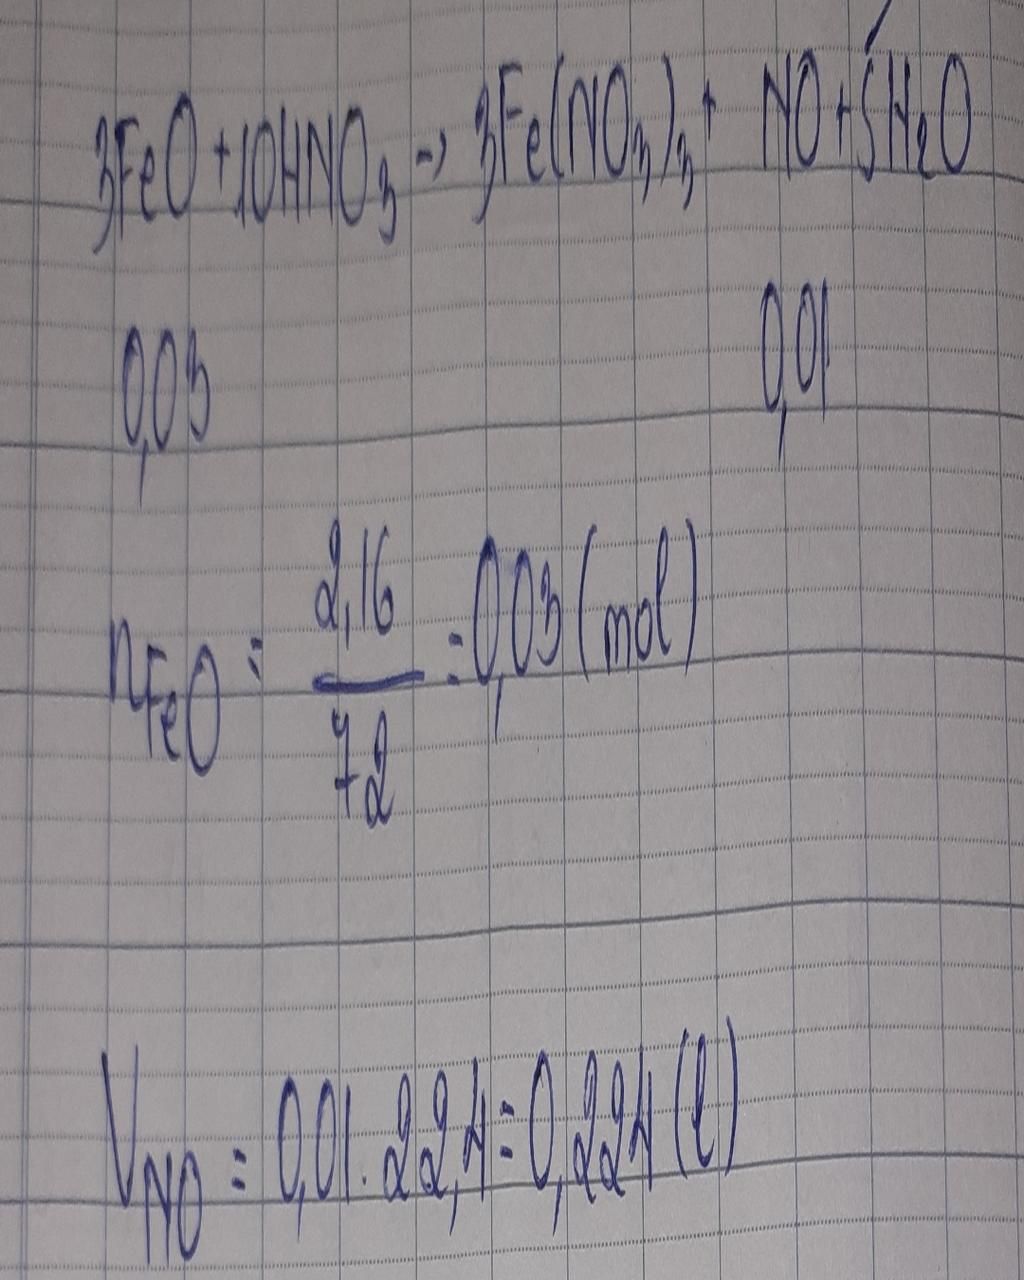 3FeO + 10HNO₃ → 3Fe(NO₃)₃ + NO + 5H₂O
0,03 0,01
nFeO = 2,16 / 72 = 0,03 (mol)
VNO = 0,01 . 22,4 = 0,224 (l)